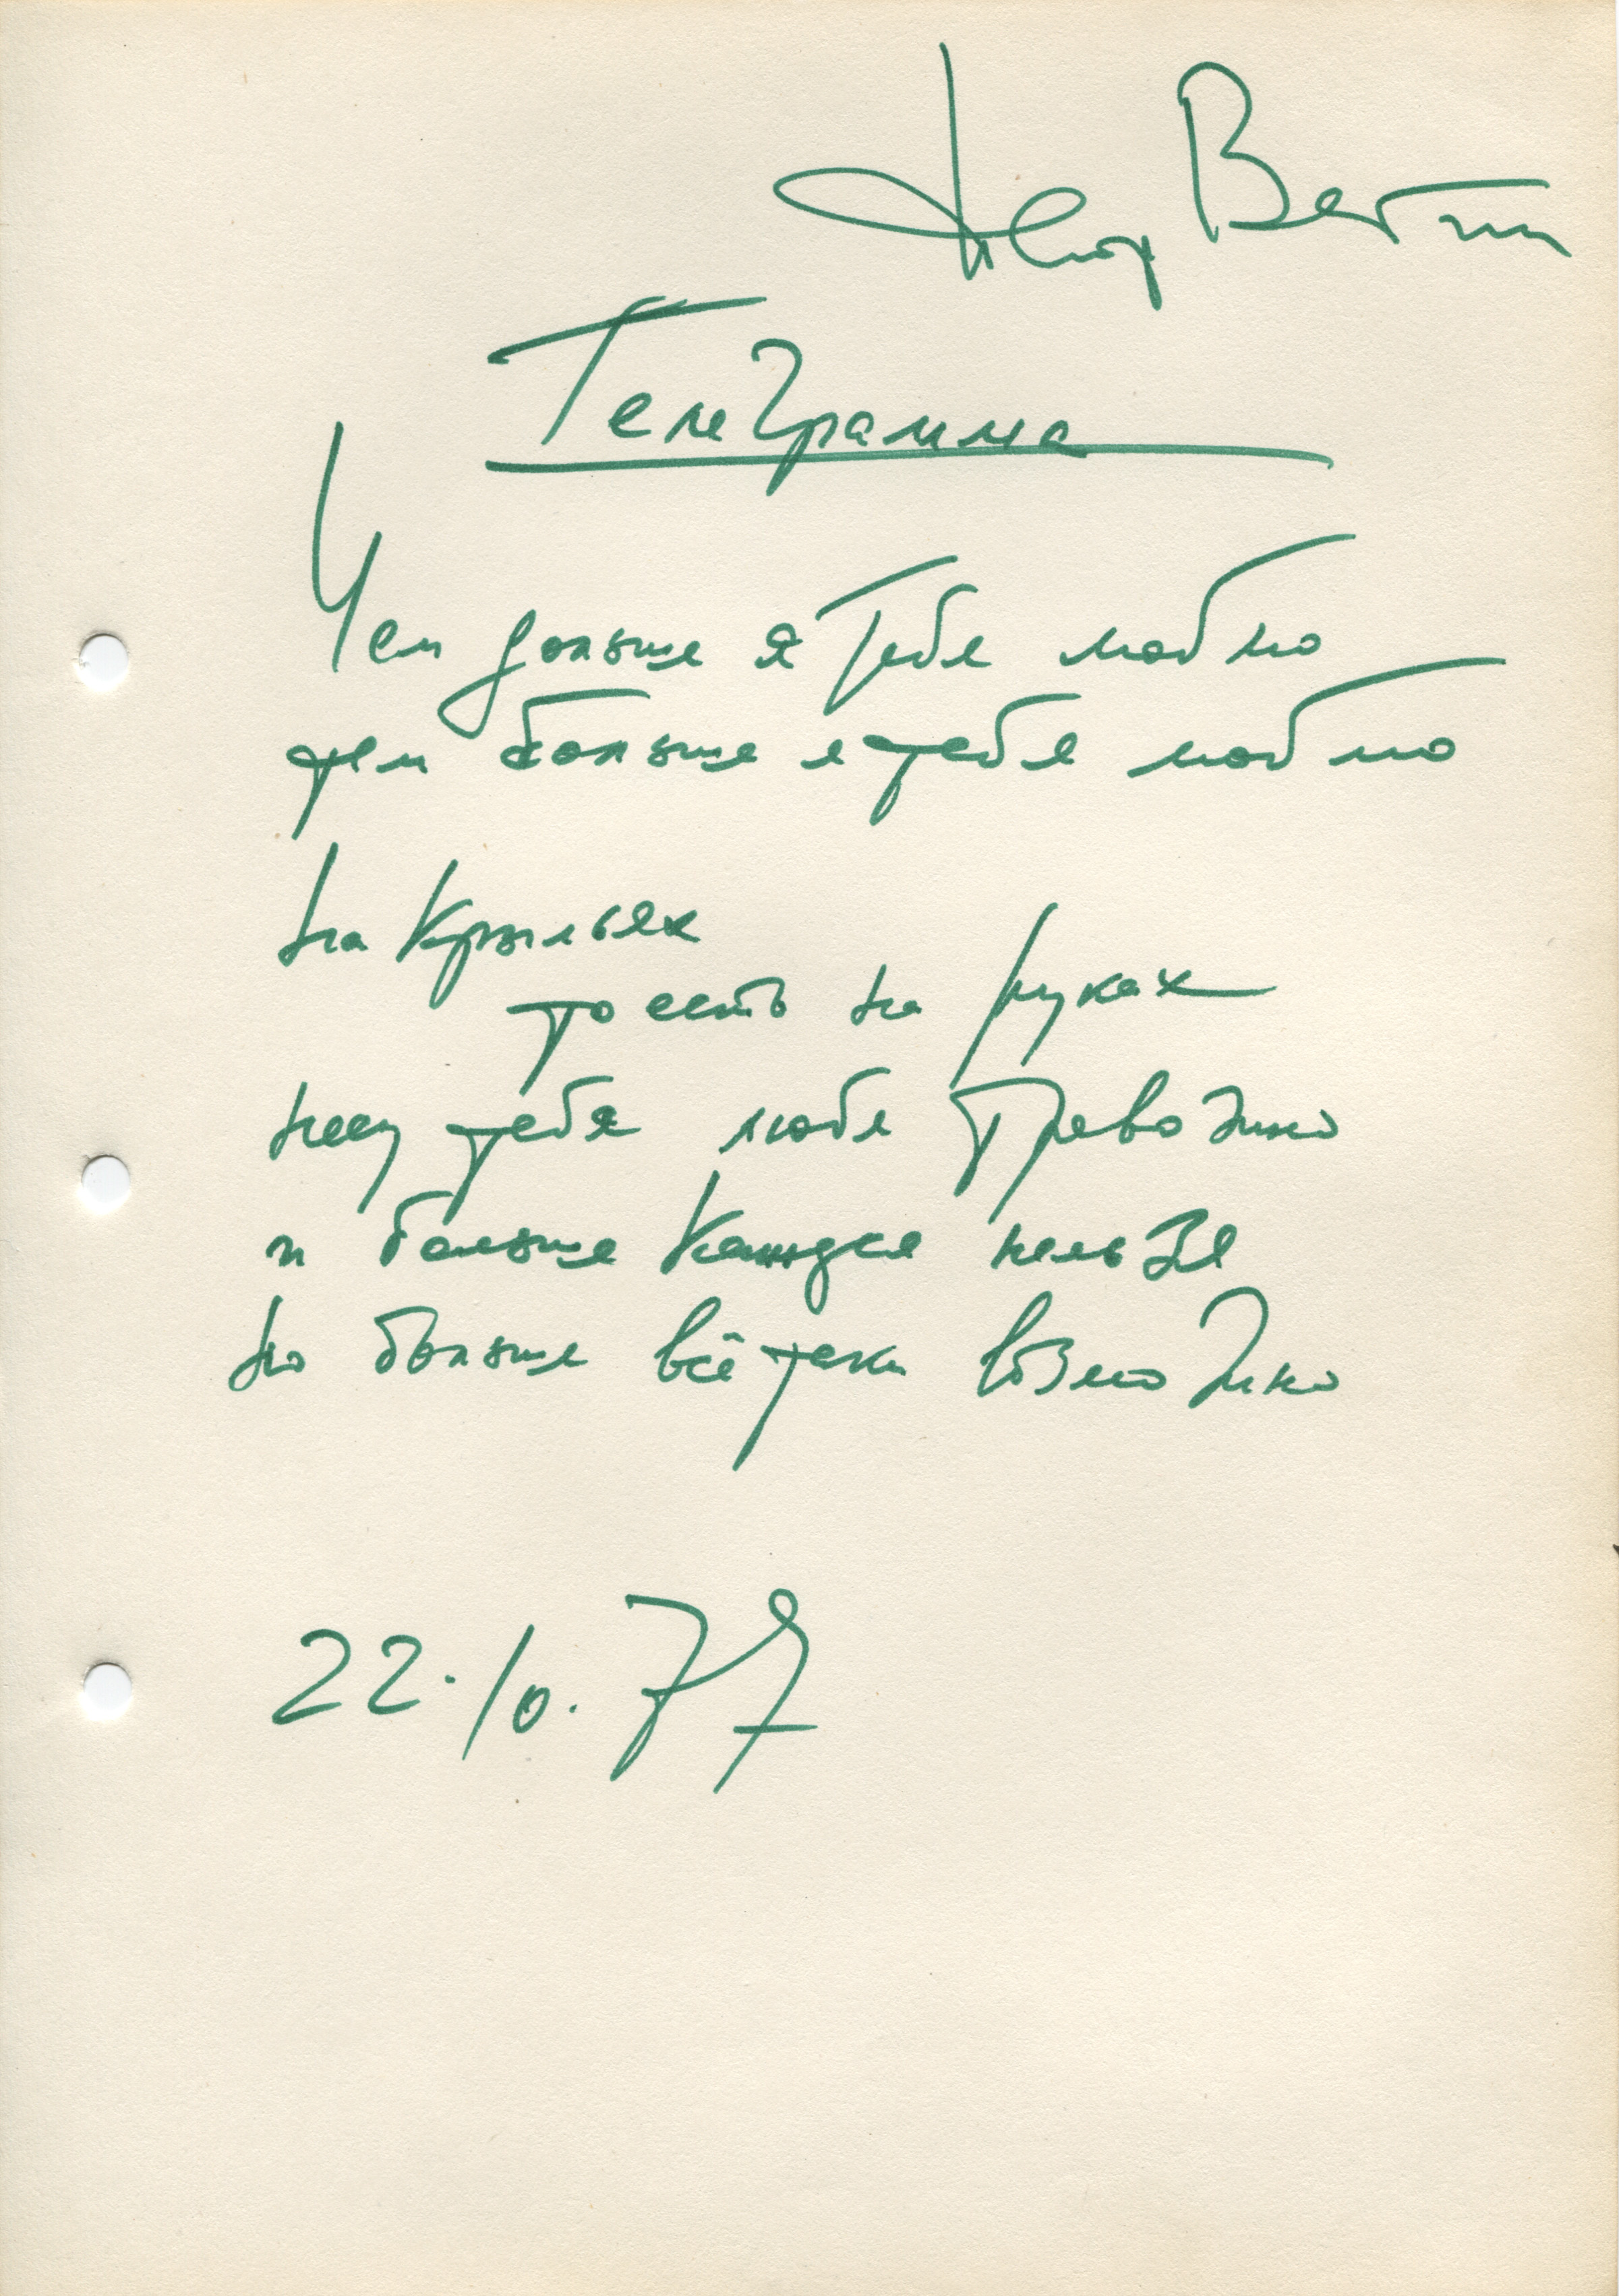 Телеграмма
Чем дольше я Тебя люблю
тем больше я тебя люблю
на Крыльях
то есть на руках
несу тебя любя Тревожно
и больше нельзя
но больше всё таки возможно
22.10.77